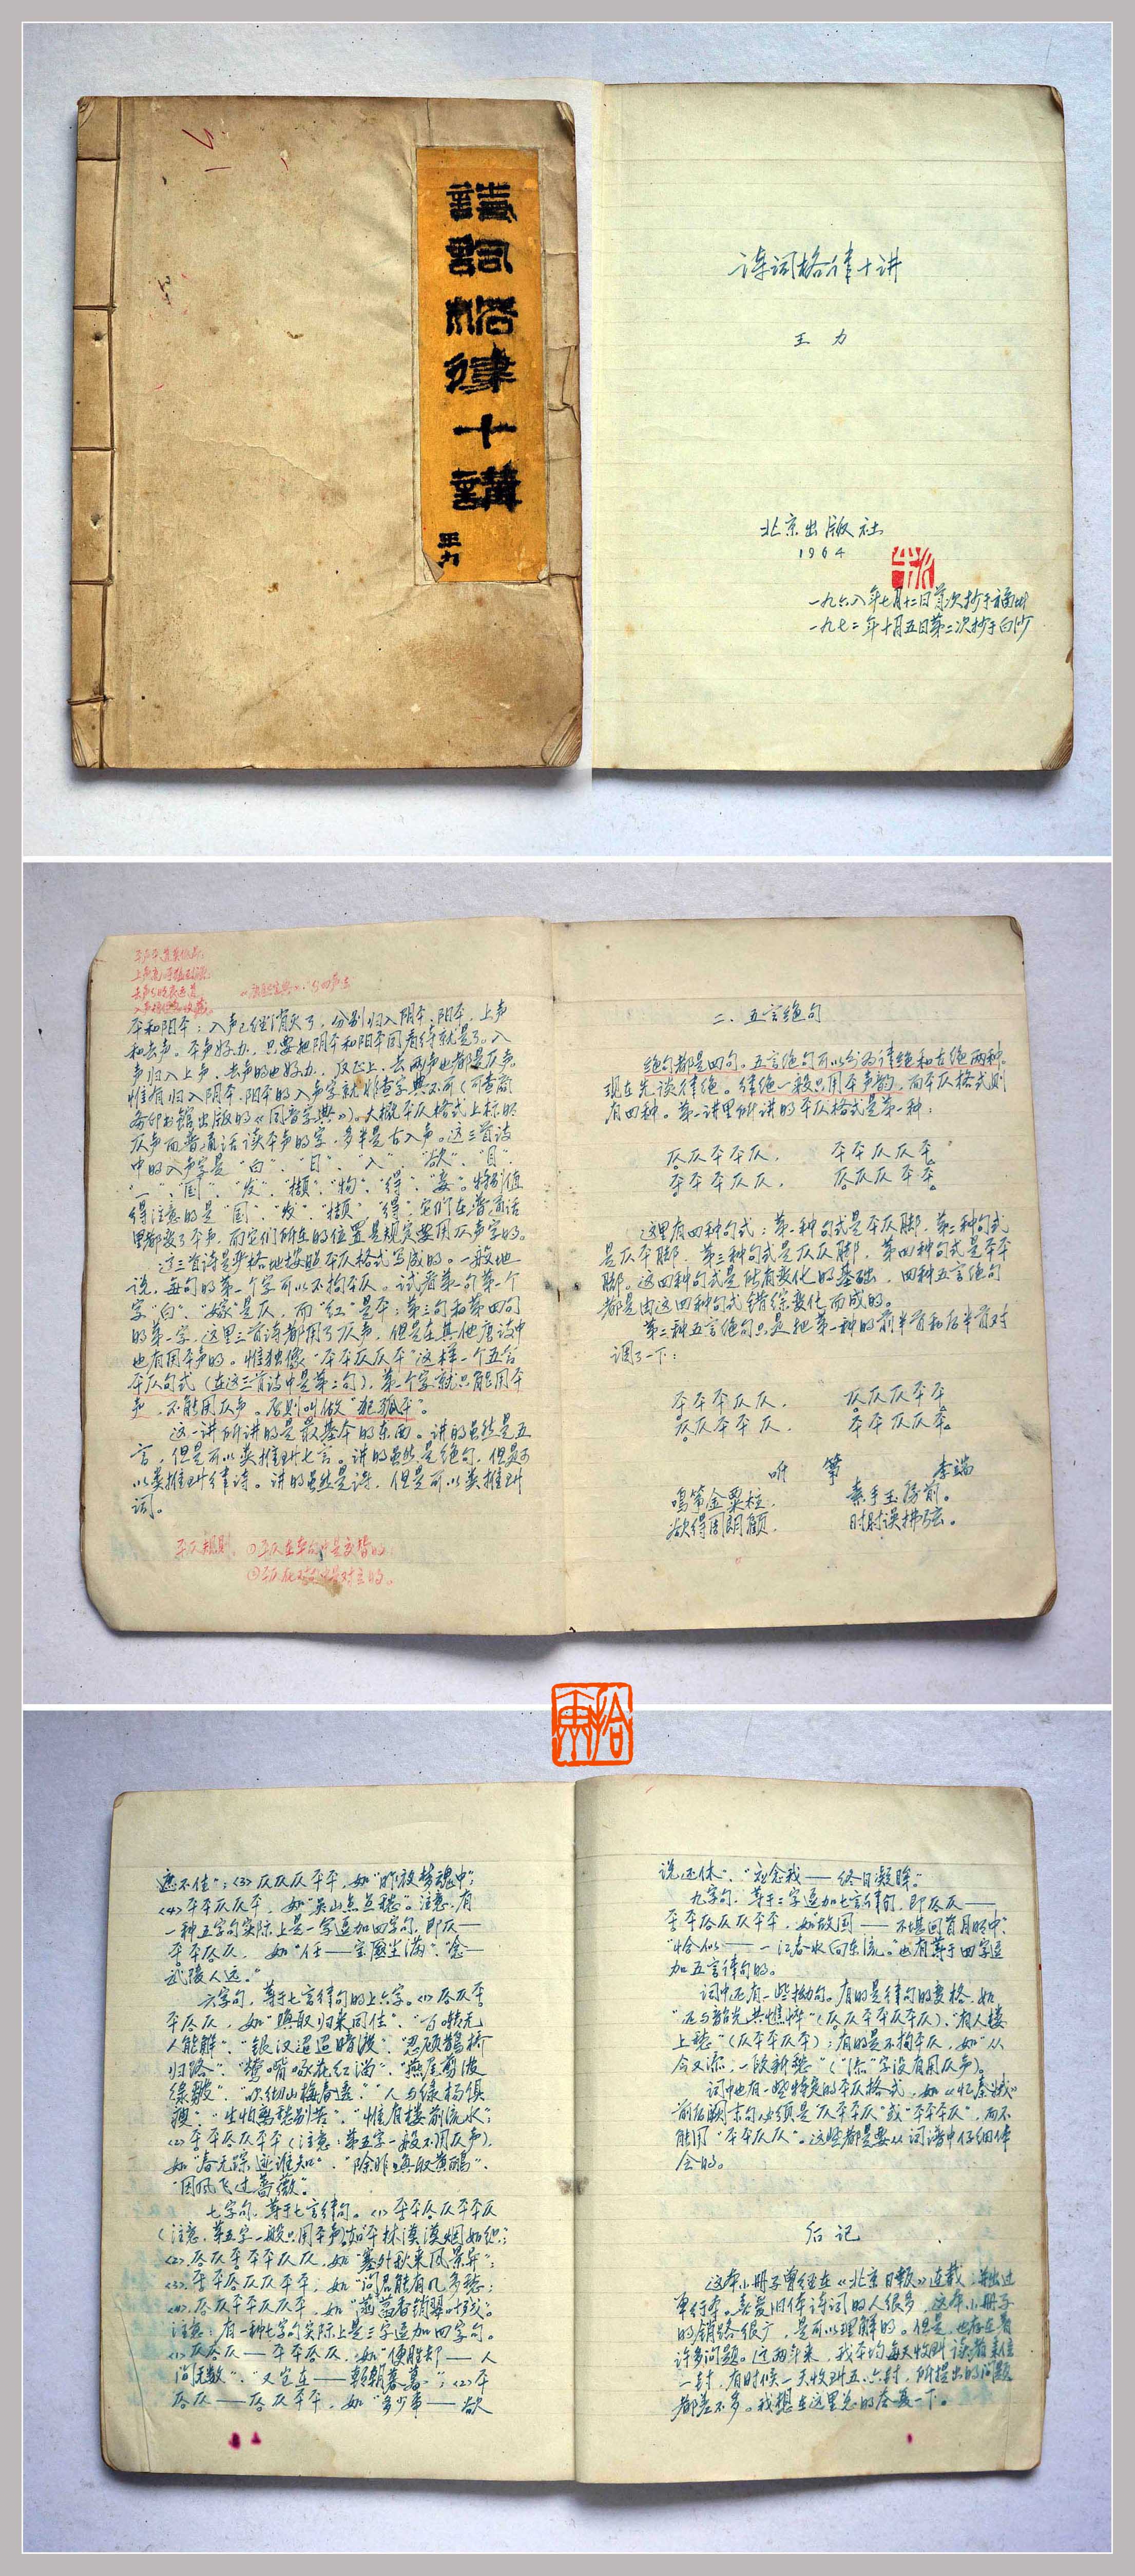 詩詞格律十講
王力
诗词格律十讲
王 力
北京出版社
1964
一九六八年七月十二日首次抄于福州
一九七二年十月五日第二次抄于白沙
平和阳平；入声已经消灭了，分别归入阴平、阳平、上声
和去声。平声好办，只要把阴平和阳平同看待就是了。入
声归入上声、去声的也好办，反正上、去两声也都是仄声。
惟有归入阴平、阳平的入声字就非查字典不可（可查商
务印书馆出版的《同音字典》）。大概平仄格式上标明
仄声而普通话读平声的字，多半是古入声。这三首诗
中的入声字是“白”、“日”、“入”、“欲”、“目”、
“一”、“国”、“发”、“撷”、“物”、“得”、“妾”。特别值
得注意的是“国”、“发”、“撷”、“得”，它们在普通话
里都变了平声，而它们所在的位置是规定要用仄声字的。
这三首诗是严格地按照平仄格式写成的。一般地
说，每句的第一个字可以不拘平仄。试看第一句第一个
字“白”、“嫁”是仄，而“红”是平；第三句和第四句
的第一字，这里三首诗都用了仄声，但是在其他唐诗中
也有用平声的。惟独像“平平仄仄平”这样一个五言
平仄句式（在这三首诗中是第二句），第一个字就只能用平
声，不能用仄声。否则叫做“犯孤平”。
这一讲所讲的是最基本的东西。讲的虽然是五
言，但是可以类推到七言。讲的虽然是绝句，但是可
以类推到律诗。讲的虽然是诗，但是可以类推到
词。
平仄规则 ①平仄在本句中是交替的
②平仄在对句中是对立的。
二、五言绝句
绝句都是四句。五言绝句可以分为律绝和古绝两种。
现在先谈律绝。律绝一般只用平声韵，而平仄格式则
有四种。第一讲里所讲的平仄格式是第一种：
仄仄平平仄， 平平仄仄平。
平平平仄仄， 仄仄仄平平。
这里有四种句式：第一种句式是平仄脚，第二种句式
是仄平脚，第三种句式是仄仄脚，第四种句式是平平
脚。这四种句式是能有变化的基础，四种五言绝句
都是由这四种句式错综变化而成的。
第二种五言绝句只是把第一种的前半首和后半首对
调了一下：
平平平仄仄， 仄仄仄平平。
仄仄平平仄， 平平仄仄平。
听 筝 李端
鸣筝金粟柱， 素手玉房前。
欲得周郎顾， 时时误拂弦。
遮不住”；〈3〉仄仄仄平平，如“昨夜梦魂中”；
〈4〉平平仄仄平，如“吴山点点愁”。注意，有
一种五字句实际上是一字逗加四字句，即仄——
平平仄仄，如“任——宝奁尘满”、“念——
武陵人远。”
六字句，等于七言律句的上六字。〈1〉仄仄平
平仄仄，如“唤取归来同住”、“百啭无
人能解”、“银汉迢迢暗渡”、“忍顾鹊桥
归路”、“莺嘴啄花红溜”、“燕尾剪波
绿皱”、“吹彻小梅春透”、“人与绿杨俱
瘦”、“生怕离愁别苦”、“惟有楼前流水”；
〈2〉平平仄仄平平（注意：第五字一般不用仄声），
如“春无踪迹谁知”、“除非唤取黄鹂”、
“因风飞过蔷薇”。
七字句，等于七言律句。〈1〉平平仄仄平平仄
（注意，第五字一般只用平声），如平林漠漠烟如织；
〈2〉仄仄平平平仄仄，如“塞外秋来风景异”；
〈3〉平平仄仄仄平平，如“问君能有几多愁；
〈4〉仄仄平平仄仄平，如“菡萏香销翠叶残”。
注意：有一种七字句实际上是三字逗加四字句。
〈1〉仄仄仄——平平仄仄，如“便胜却——人
间无数”、“又岂在——朝朝暮暮”；〈2〉平
仄仄——仄仄平平，如“多少事——欲
说还休”、“应念我——终日凝眸”。
九字句，等于二字逗加七言律句，即仄仄——
平平仄仄仄平平，如“故国——不堪回首月明中”、
“恰似——一江春水向东流。”也有等于四字逗
加五言律句的。
词中还有一些拗句。有的是律句的变格，如
“还与韶光共憔悴”（仄仄平平仄平仄）、“有人楼
上愁”（仄平平仄平）；有的是不拘平仄，如“从
今又添，一段新愁”（“添”字没有用仄声）。
词中也有一些特定的平仄格式，如《忆秦娥》
前后阕末句必须是“仄平平仄”或“平平平仄”，而不
能用“平平仄仄”。这些都是要从词谱中仔细体
会的。
后 记
这本小册子曾经在《北京日报》连载，并出过
单行本。喜爱旧体诗词的人很多，这本小册子
的销路很广，是可以理解的。但是，也存在着
许多问题。这两年来，我平均每天收到读者来信
一封，有时候一天收到五、六封，所提出的问题
都差不多。我想在这里总的答复一下。